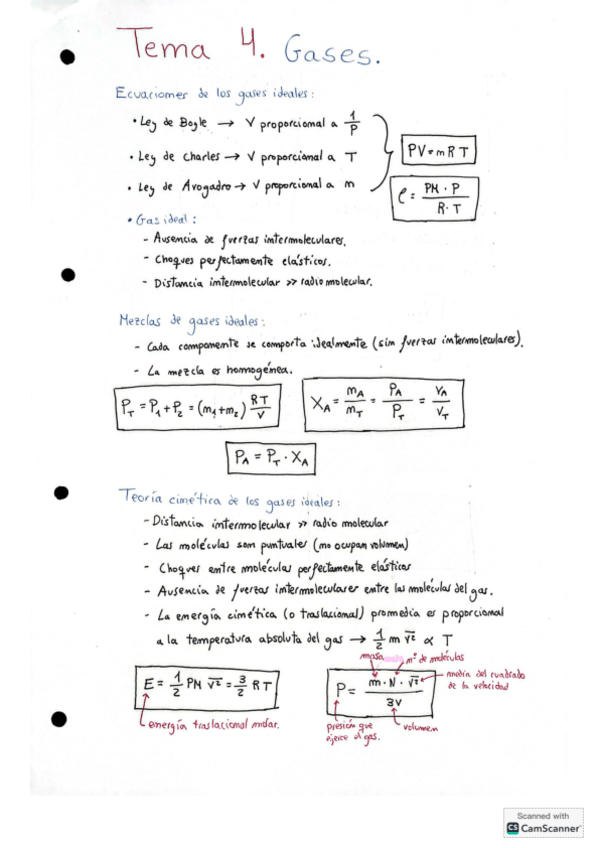 Tema 4. Gases.
Ecuaciones de los gases ideales:
• Ley de Boyle → V proporcional a 1/P
• Ley de Charles → V proporcional a T
PV = nRT
• Ley de Avogadro → V proporcional a n
ρ = PM · P / R · T
• Gas ideal:
- Ausencia de fuerzas intermoleculares.
- Choques perfectamente elásticos.
- Distancia intermolecular >> radio molecular.
Mezclas de gases ideales:
- Cada componente se comporta idealmente (sin fuerzas intermoleculares).
- La mezcla es homogénea.
P_T = P_1 + P_2 = (n_1 + n_2) RT/V
X_A = n_A/n_T = P_A/P_T = V_A/V_T
P_A = P_T · X_A
Teoría cinética de los gases ideales:
- Distancia intermolecular >> radio molecular
- Las moléculas son puntuales (no ocupan volumen)
- Choques entre moléculas perfectamente elásticos
- Ausencia de fuerzas intermoleculares entre las moléculas del gas.
- La energía cinética (o traslacional) promedia es proporcional
a la temperatura absoluta del gas → 1/2 m v̅² ∝ T
masa
nº de moléculas
E = 1/2 PM v̅² = 3/2 RT
P = m · N · v̅² / 3V
media del cuadrado
de la velocidad
energía traslacional molar.
presión que
ejerce el gas.
volumen
Scanned with
CS CamScanner